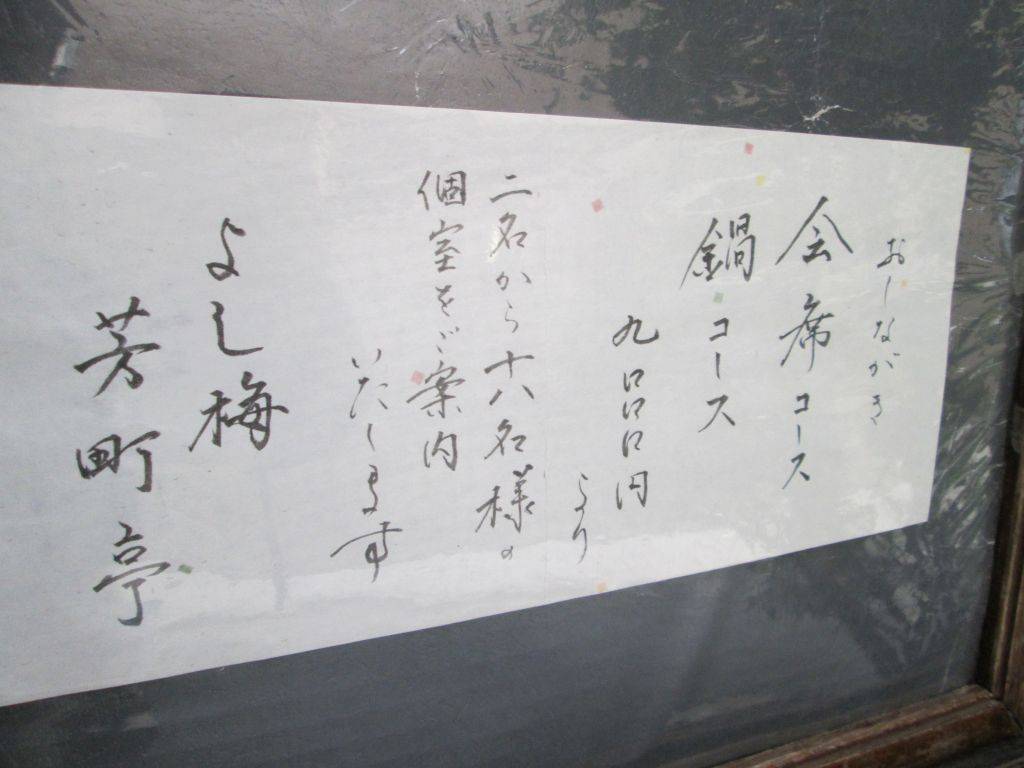 おしながき
会席コース
鍋コース
九〇〇〇円
より
二名から十八名様の
個室をご案内
いたします
よし梅
芳町亭